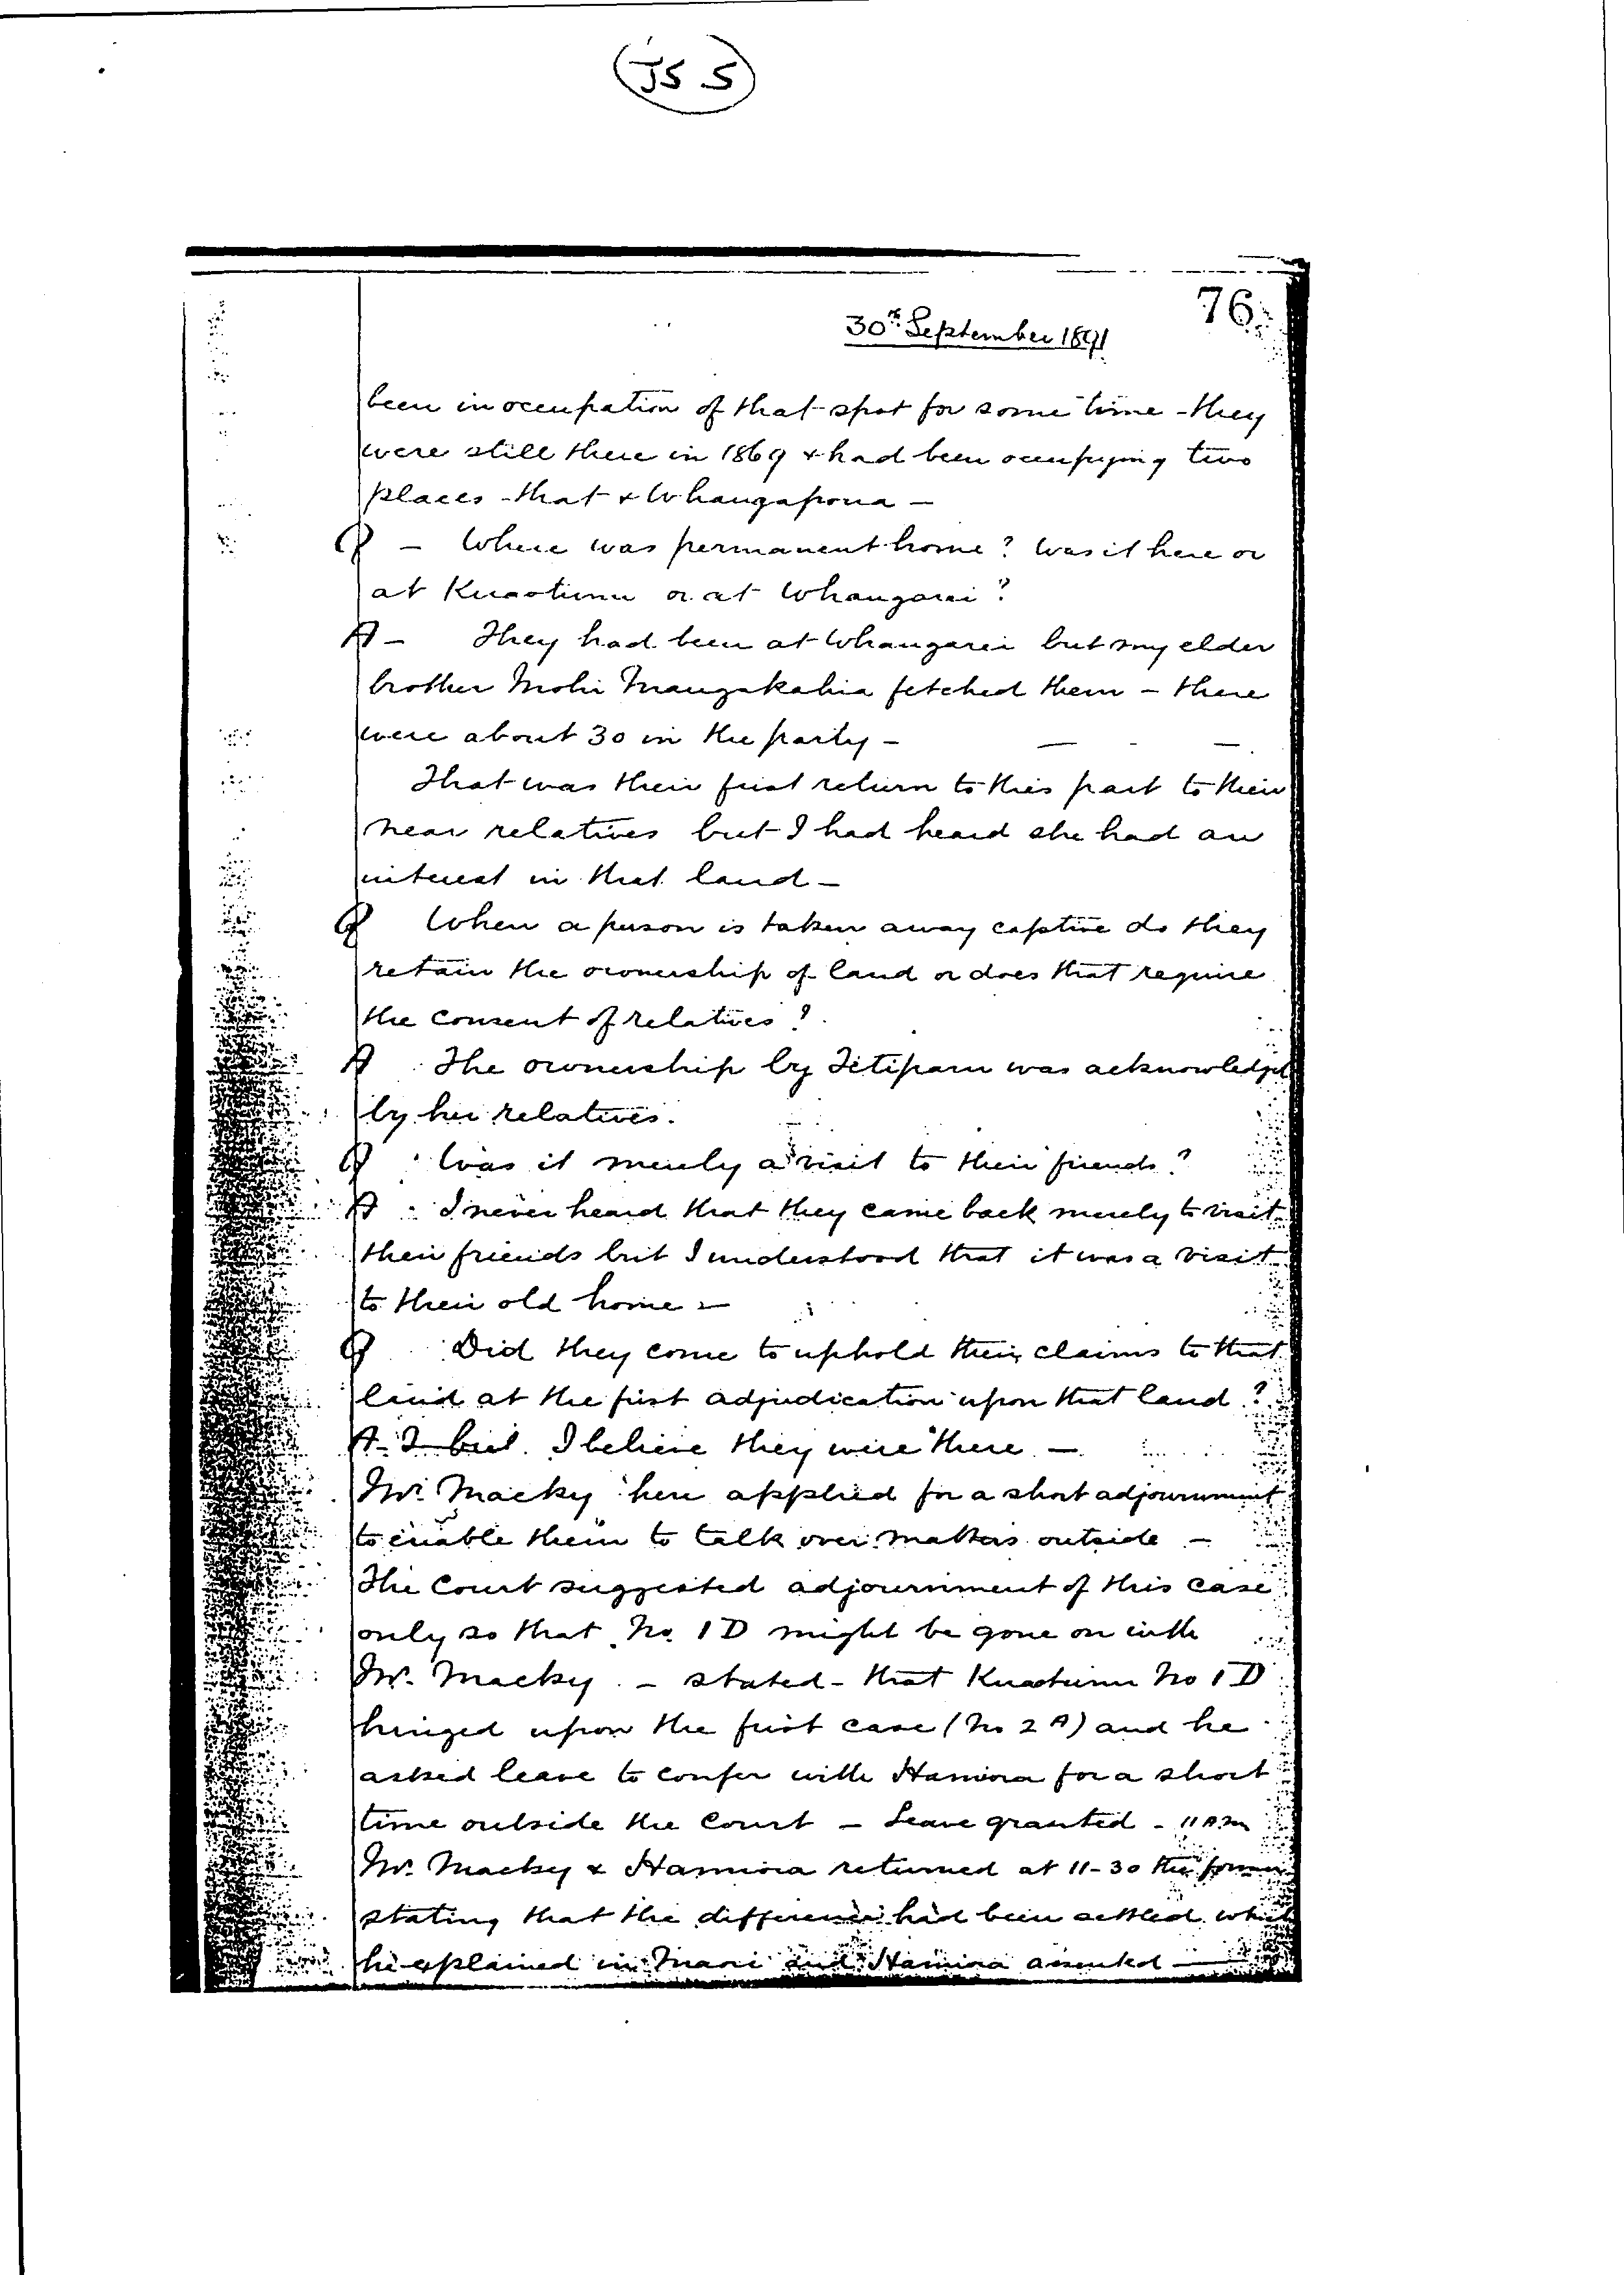 JS 5
76.
30th September 1891
been in occupation of that spot for some time - they
were still there in 1869 & had been occupying two
places - that & Whangapoua -
Q - Where was permanent home? Was it here or
at Kuaotunu or at Whangarei?
A - They had been at Whangarei but my elder
brother Mohi Mangakahia fetched them - there
were about 30 in the party -
That was their first return to this part to their
near relatives but I had heard she had an
interest in that land -
Q When a person is taken away captive do they
retain the ownership of land or does that require
the consent of relatives?
A The ownership by Titipam was acknowledged
by her relatives.
Q Was it merely a visit to their friends?
A I never heard that they came back merely to visit
their friends but I understood that it was a visit
to their old home -
Q Did they come to uphold their claims to that
land at the first adjudication upon that land?
A - I bel. I believe they were there -
Mr. Macky here applied for a short adjournment
to enable them to talk over matters outside -
The Court suggested adjournment of this case
only so that No. 1 D might be gone on with
Mr. Macky - stated - that Kuaotunu No 1 D
hinged upon the first case (No 2 A) and he
asked leave to confer with Hamiora for a short
time outside the Court - Leave granted - 11 A.M
Mr. Macky & Hamiora returned at 11-30 the former
stating that the difference had been settled which
he explained in Maori and Hamiora assented -